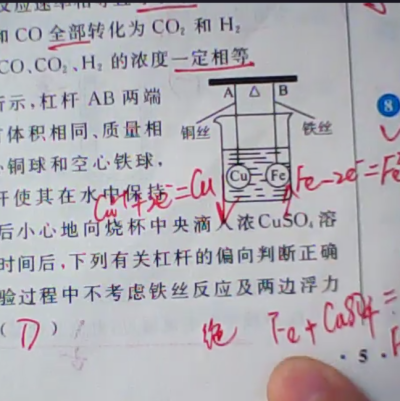 反应速率相等
和 CO 全部转化为 CO₂ 和 H₂
CO、CO₂、H₂ 的浓度一定相等
示,杠杆 AB 两端
体积相同、质量相
铜球和空心铁球,
杆使其在水中保持
A △ B
铜丝 铁丝
Cu Fe
=Cu
Fe-2e⁻=Fe
后小心地向烧杯中央滴入浓 CuSO₄ 溶
时间后,下列有关杠杆的偏向判断正确
验过程中不考虑铁丝反应及两边浮力
( D )
Fe+CuSO₄=
· 5 ·
8